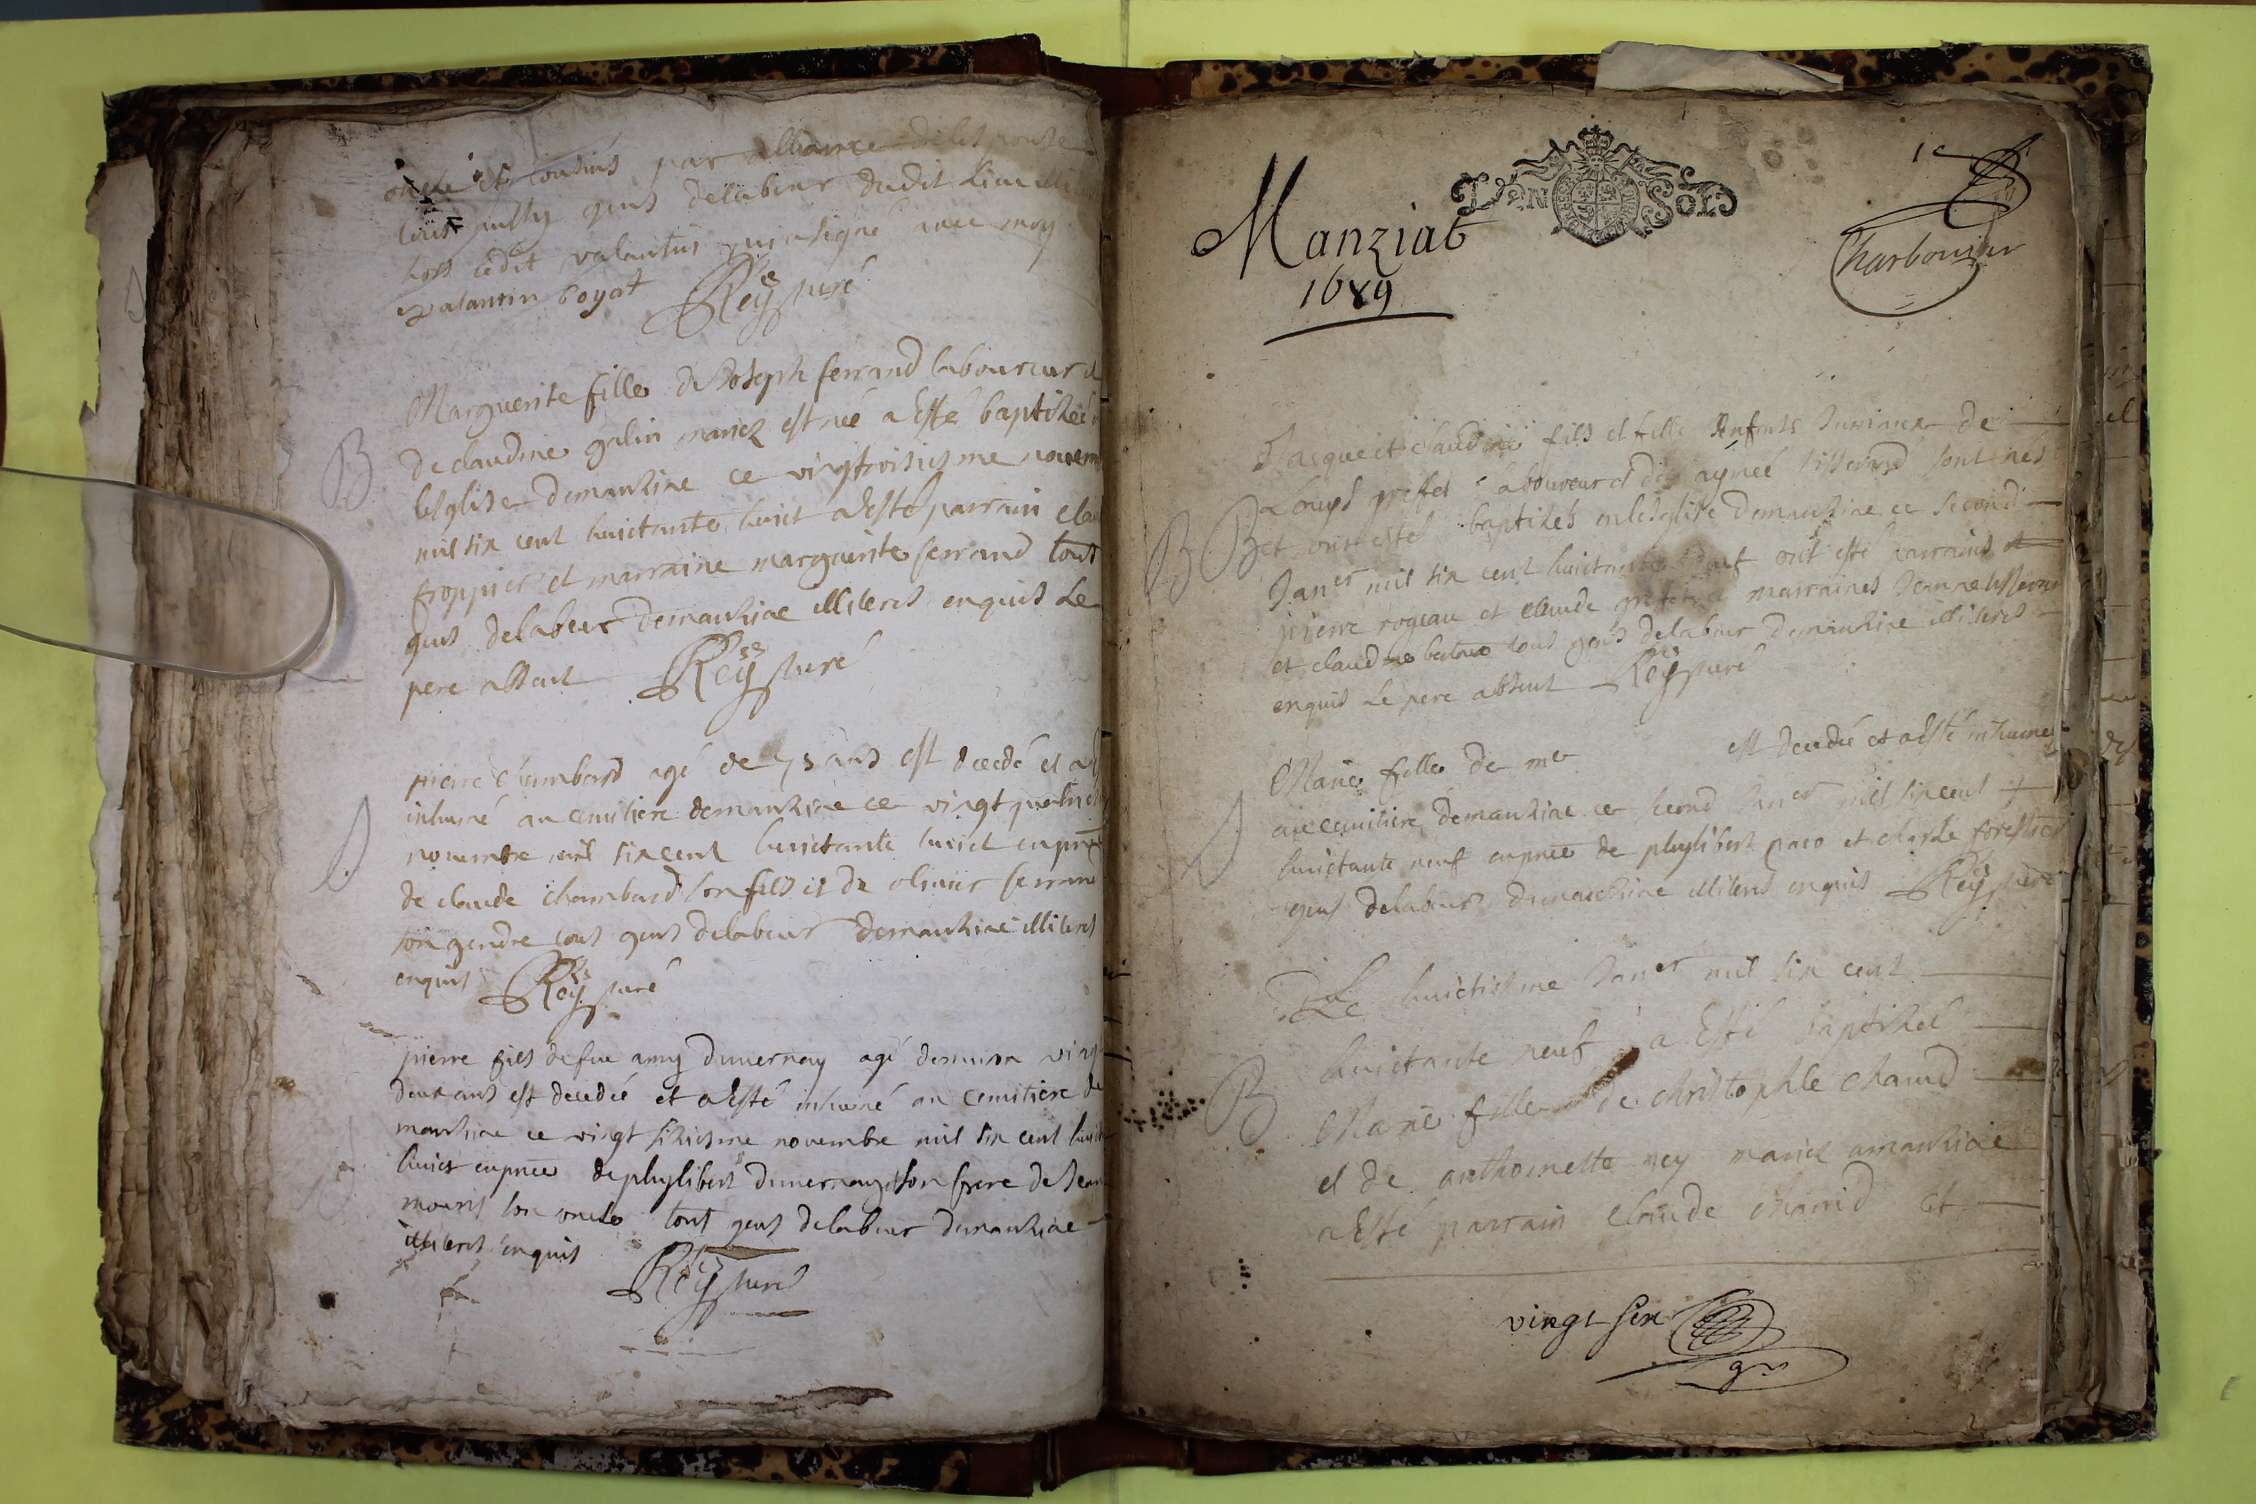 par alliance
tous gens delabeur dudit lieu
hors ledit valantin qui a signé avec moy
valantin boyat Rey curé
B
Marguerite fille de Joseph ferrand laboureur
de claudine galin mariez est née a Esté baptisée
lesglise demanziae ce vingtroisiesme novem
mil six cent huictante huict a Esté parrain
froppier et marraine marguerite ferrand tous
gens delabeur demanziae illiteres enquis Le
pere absent Rey curé
pierre Chambard agé de 75 ans est decedé et a
inhumé au cemitiere demanziae ce vingt quatries
novembre mil six cent huictante huict en pnce
de claude chambard son fils et de olivier ferrand
son gendre tous gens delabeur demanziae illiteres
enquis Rey curé
pierre fils de feu amy duvernay agé denviron vingt
deux ans est decedé et a Esté inhumé au cemitiere de
manziae ce vingt sixiesme novembre mil six cent huict
huict en pnce de phylibert duvernay son frere de Jean
son oncle tous gens delabeur demanziae
illiteres enquis
Rey curé
Un Sol
Manziat
1689
Charbonnier
B B
Jacque et claudine fils et fille Enfants Jumeaux de
Loup prefet laboureur et de aynée tisserand sont nés
et ont esté baptisés en lesglise demanziae ce second
Janer mil six cent huictante neuf ont esté parrains
pierre rogeau et claude marraines Jeanne tisserand
et claudine tous gens delabeur demanziae illiteres
enquis Le pere absent Rey curé
Marie fille de mer est decedée et a Esté inhumée
au cemitiere demanziae ce second Janer mil six cent
huictante neuf en pnce de phylibert et charle forestier
gens delabeur demanziae illiteres enquis Rey curé
Le huictiesme Janer mil six cent
B
huictante neuf a Esté baptisée
Marie fille de christophle chanud
et de anthoinette rey mariez amanziae
a Esté parrain claude chanud et
vingt six